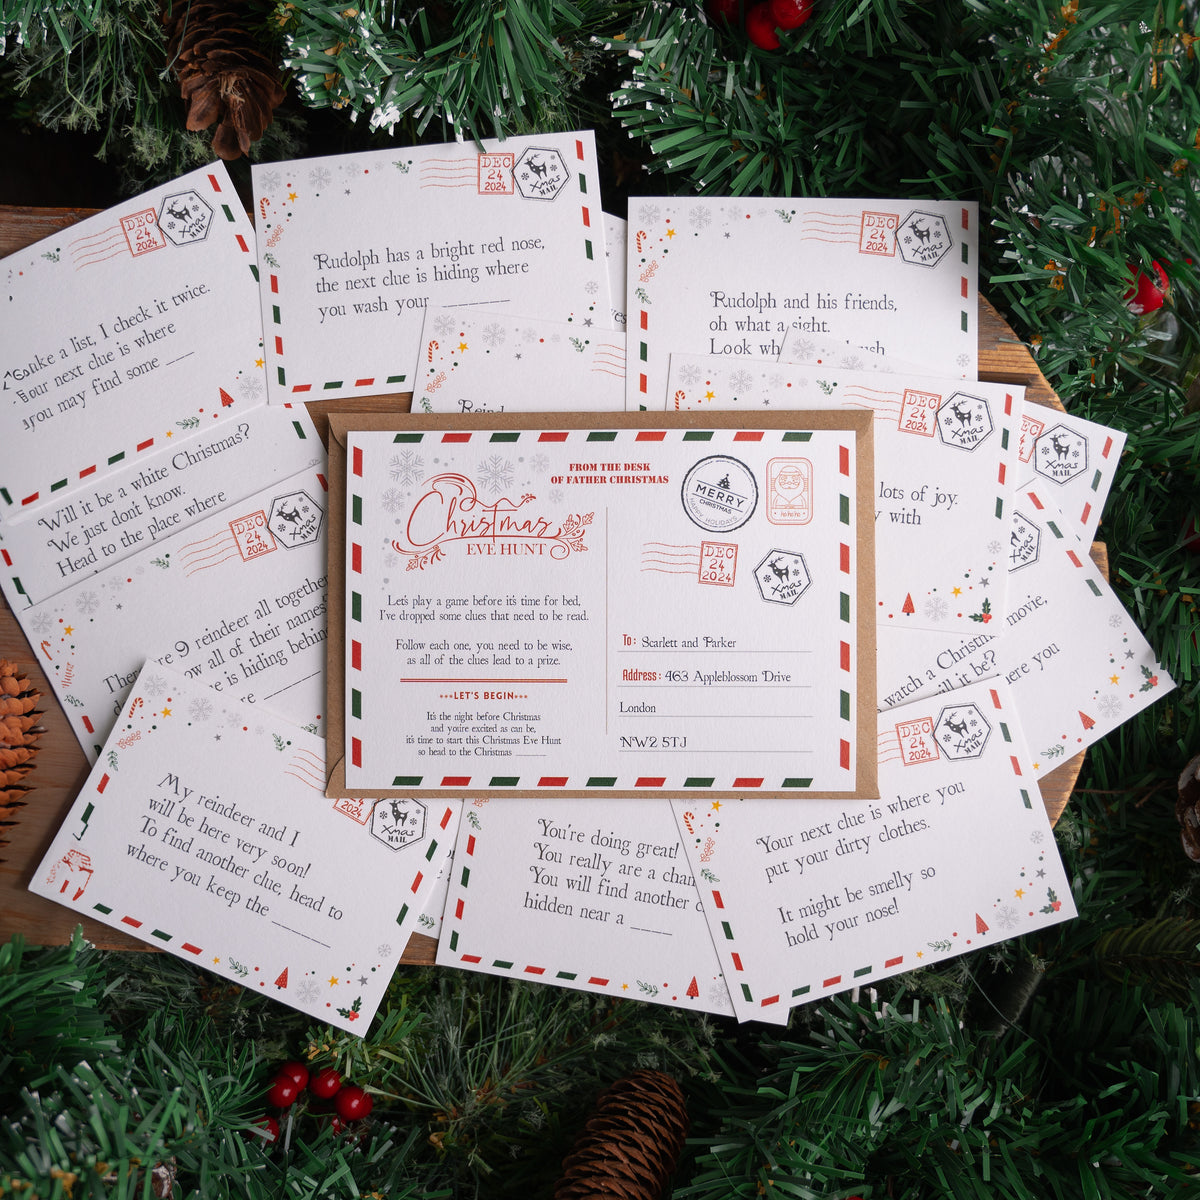 DEC
24
2024
Xmas
MAIL
make a list, I check it twice.
your next clue is where
you may find some ______
DEC
24
2024
Xmas
MAIL
Rudolph has a bright red nose,
the next clue is hiding where
you wash your ______
DEC
24
2024
Xmas
MAIL
Rudolph and his friends,
oh what a sight.
Look
Will it be a white Christmas?
We just don't know.
Head to the place where
DEC
24
2024
Xmas
MAIL
9 reindeer all together
all of their names
is hiding
DEC
24
2024
Xmas
MAIL
lots of joy.
with
Xmas
MAIL
Xmas
MAIL
watch a movie,
it be?
you
FROM THE DESK
OF FATHER CHRISTMAS
Christmas
EVE HUNT
MERRY
CHRISTMAS
HAPPY HOLIDAYS
HoHoHo
DEC
24
2024
Xmas
MAIL
Let's play a game before it's time for bed,
I've dropped some clues that need to be read.
Follow each one, you need to be wise,
as all of the clues lead to a prize.
***LET'S BEGIN***
It's the night before Christmas
and you're excited as can be,
it's time to start this Christmas Eve Hunt
so head to the Christmas ______
To: Scarlett and Parker
Address: 463 Appleblossom Drive
London
NW2 5TJ
24
2024
Xmas
MAIL
My reindeer and I
will be here very soon!
To find another clue, head to
where you keep the ______
You're doing great!
You really are a
You will find another
hidden near a ____
DEC
24
2024
Xmas
MAIL
Your next clue is where you
put your dirty clothes.
It might be smelly so
hold your nose!